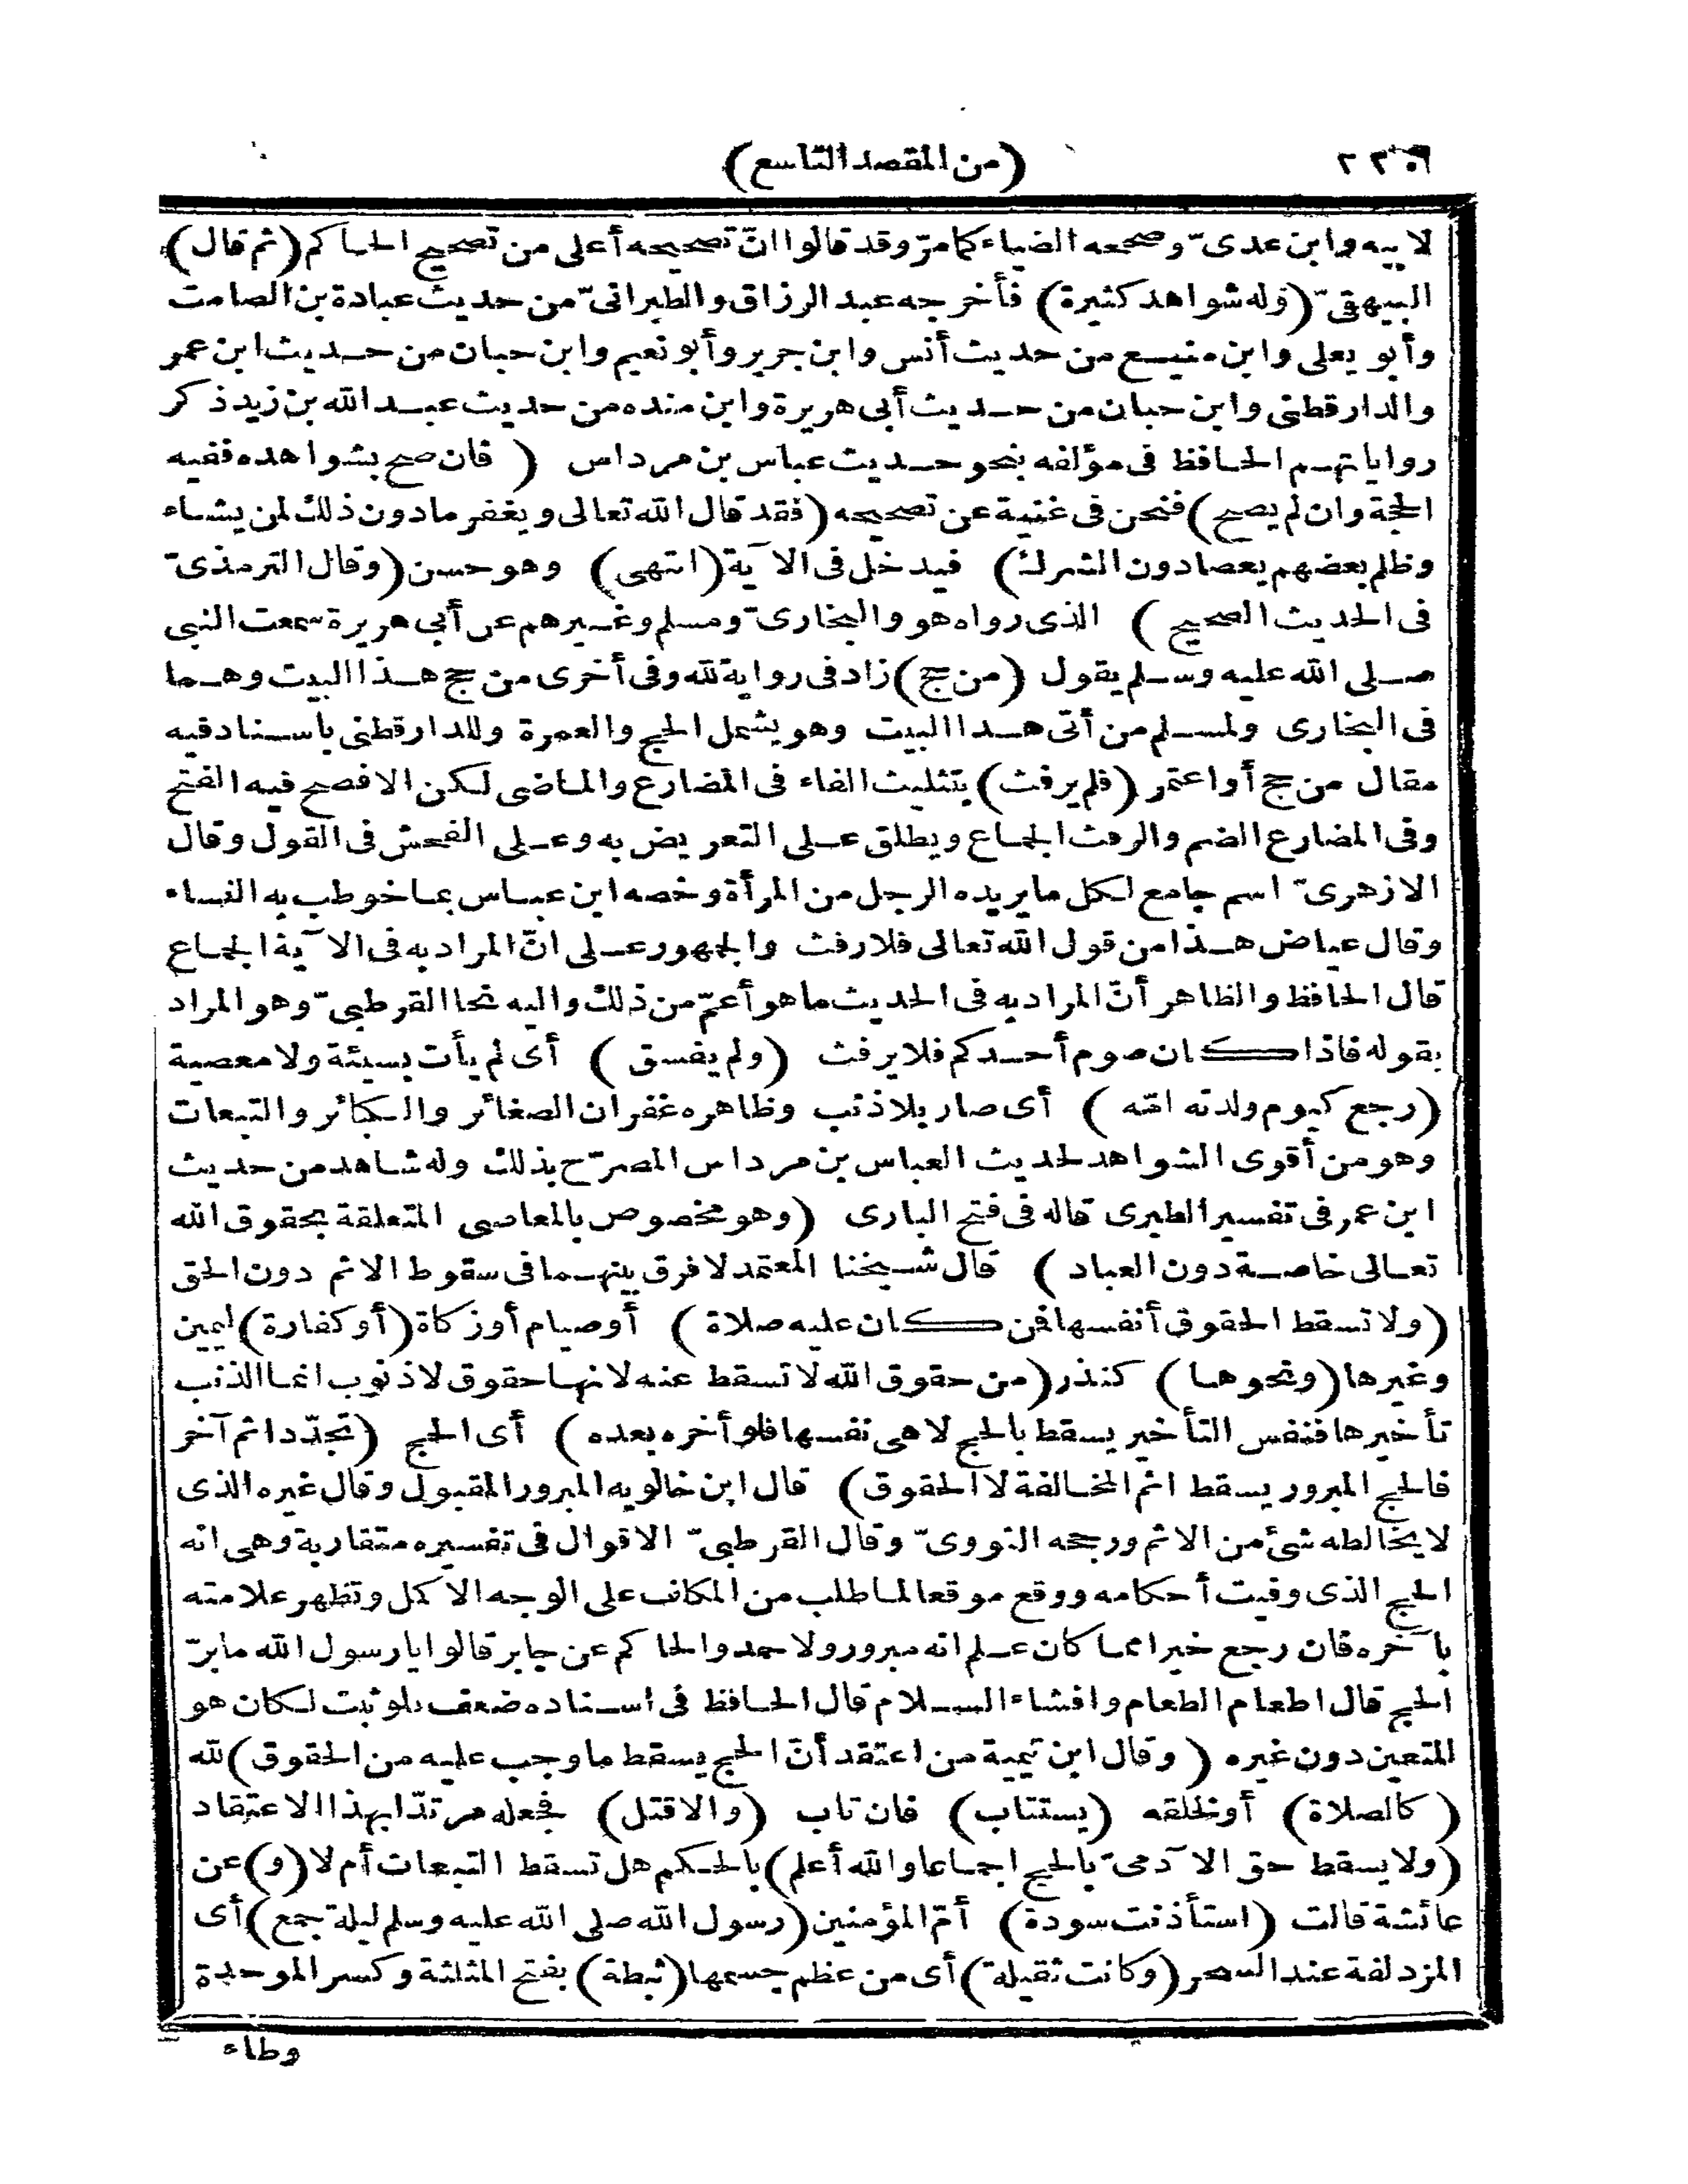 ٢٢٠٦ (من المقصد التاسع)
لابيه وابن عدىّ وصححه الضياء كما مرّ وقد قالوا انّ تصحيحه أعلى من تصحيح الحاكم (ثم قال)
البيهقىّ (وله شواهد كثيرة) فأخرجه عبد الرزاق والطبرانىّ من حديث عبادة بن الصامت
وأبو يعلى وابن منيع من حديث أنس وابن جرير وأبو نعيم وابن حبان من حديث ابن عمر
والدارقطنى وابن حبان من حديث أبى هريرة وابن منده من حديث عبد الله بن زيد ذكر
رواياتهم الحافظ فى مؤلفه بنحو حديث عباس بن مرداس (فان صح بشواهده ففيه
الحجة وان لم يصح) فنحن فى غنية عن تصحيحه (فقد قال الله تعالى ويغفر مادون ذلك لمن يشاء
وظلم بعضهم بعضا دون الشرك) فيدخل فى الآية (انتهى) وهو حسن (وقال الترمذىّ
فى الحديث الصحيح) الذى رواه هو والبخارىّ ومسلم وغيرهم عن أبى هريرة سمعت النبى
صلى الله عليه وسلم يقول (من حج) زاد فى رواية لله وفى أخرى من حج هذا البيت وهما
فى البخارى ولمسلم من أتى هذا البيت وهو يشمل الحج والعمرة وللدارقطنى باسناد فيه
مقال من حج أو اعتمر (فلم يرفث) بتثليث الفاء فى المضارع والماضى لكن الافصح فيه الفتح
وفى المضارع الضم والرفث الجماع ويطلق على التعريض به وعلى الفحش فى القول وقال
الازهرىّ اسم جامع لكل ما يريده الرجل من المرأة وخصه ابن عباس بما خوطب به النساء
وقال عياض هذا من قول الله تعالى فلا رفث والجمهور على انّ المراد به فى الآية الجماع
قال الحافظ والظاهر أنّ المراد به فى الحديث ما هو أعمّ من ذلك واليه نحا القرطبىّ وهو المراد
بقوله فاذا كان صوم أحدكم فلا يرفث (ولم يفسق) أى لم يأت بسيئة ولا معصية
(رجع كيوم ولدته امّه) أى صار بلا ذنب وظاهره غفران الصغائر والكبائر والتبعات
وهو من أقوى الشواهد لحديث العباس بن مرداس المصرّح بذلك وله شاهد من حديث
ابن عمر فى تفسير الطبرى قاله فى فتح البارى (وهو مخصوص بالمعاصى المتعلقة بحقوق الله
تعالى خاصة دون العباد) قال شيخنا المعتمد لا فرق بينهما فى سقوط الاثم دون الحق
(ولا تسقط الحقوق أنفسها فمن كان عليه صلاة) أو صيام أو زكاة (أو كفارة) ليمين
وغيرها (ونحوها) كنذر (من حقوق الله لا تسقط عنه لانها حقوق لا ذنوب انما الذنب
تأخيرها فنفس التأخير يسقط بالحج لا هى نفسها فلو أخره بعده) أى الحج (تجدّد اثم آخر
فالحج المبرور يسقط اثم المخالفة لا الحقوق) قال ابن خالويه المبرور المقبول وقال غيره الذى
لا يخالطه شئ من الاثم ورجحه النووىّ وقال القرطبىّ الاقوال فى تفسيره متقاربة وهى انه
الحج الذى وفيت أحكامه ووقع موقعا لما طلب من المكلف على الوجه الاكمل وتظهر علامته
بآخره فان رجع خيرا مما كان علم انه مبرور ولاحمد والحاكم عن جابر قالوا يا رسول الله مابرّ
الحج قال اطعام الطعام وافشاء السلام قال الحافظ فى اسناده ضعف فلو ثبت لكان هو
المتعين دون غيره (وقال ابن تيمية من اعتقد أنّ الحج يسقط ما وجب عليه من الحقوق) لله
(كالصلاة) أو لخلقه (يستتاب) فان تاب (والا قتل) فجعله مرتدّا بهذا الاعتقاد
(ولا يسقط حق الآدمىّ بالحج اجماعا والله أعلم) بالحكم هل تسقط التبعات أم لا (و) عن
عائشة قالت (استأذنت سودة) أمّ المؤمنين (رسول الله صلى الله عليه وسلم ليلة جمع) أى
المزدلفة عند السحر (وكانت ثقيلة) أى من عظم جسمها (ثبطة) بفتح المثلثة وكسر الموحدة
وطاء